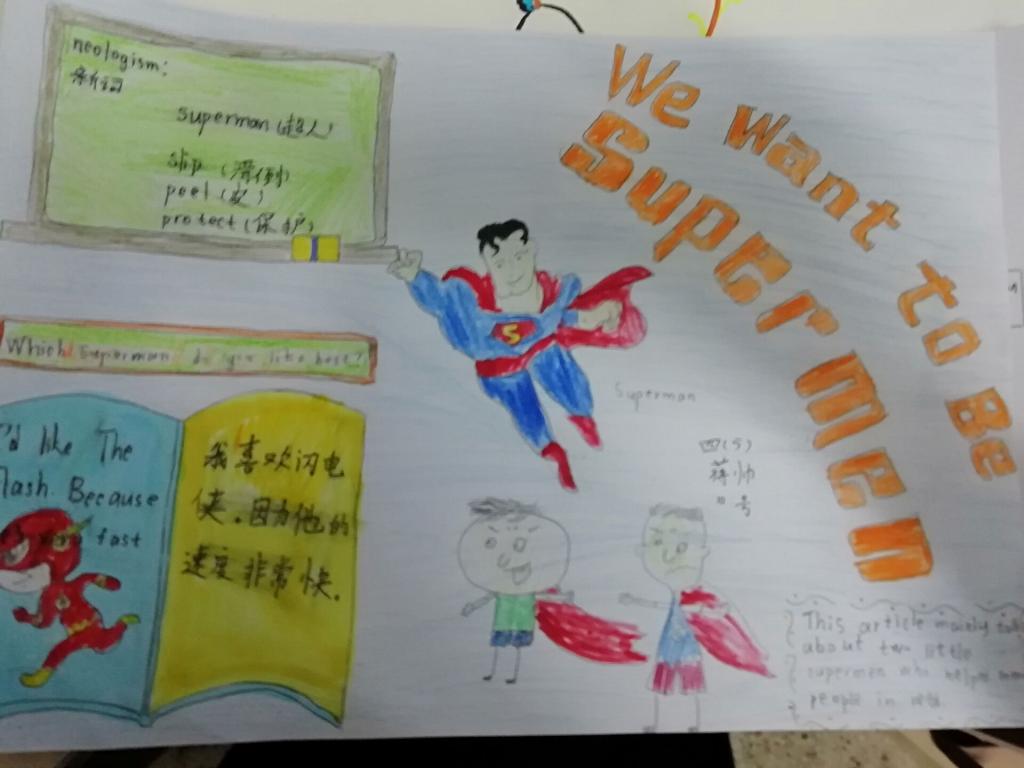 neologism:
新词
superman (超人)
slip (滑倒)
peel (皮)
protect (保护)
We Want to Be
Supermen
S
Superman
Which superman do you like best?
I'd like The
Flash. Because
fast
我喜欢闪电
侠.因为他的
速度非常快.
四(5)
蒋帅
号
This article mainly
about two little
superman who helps
people in